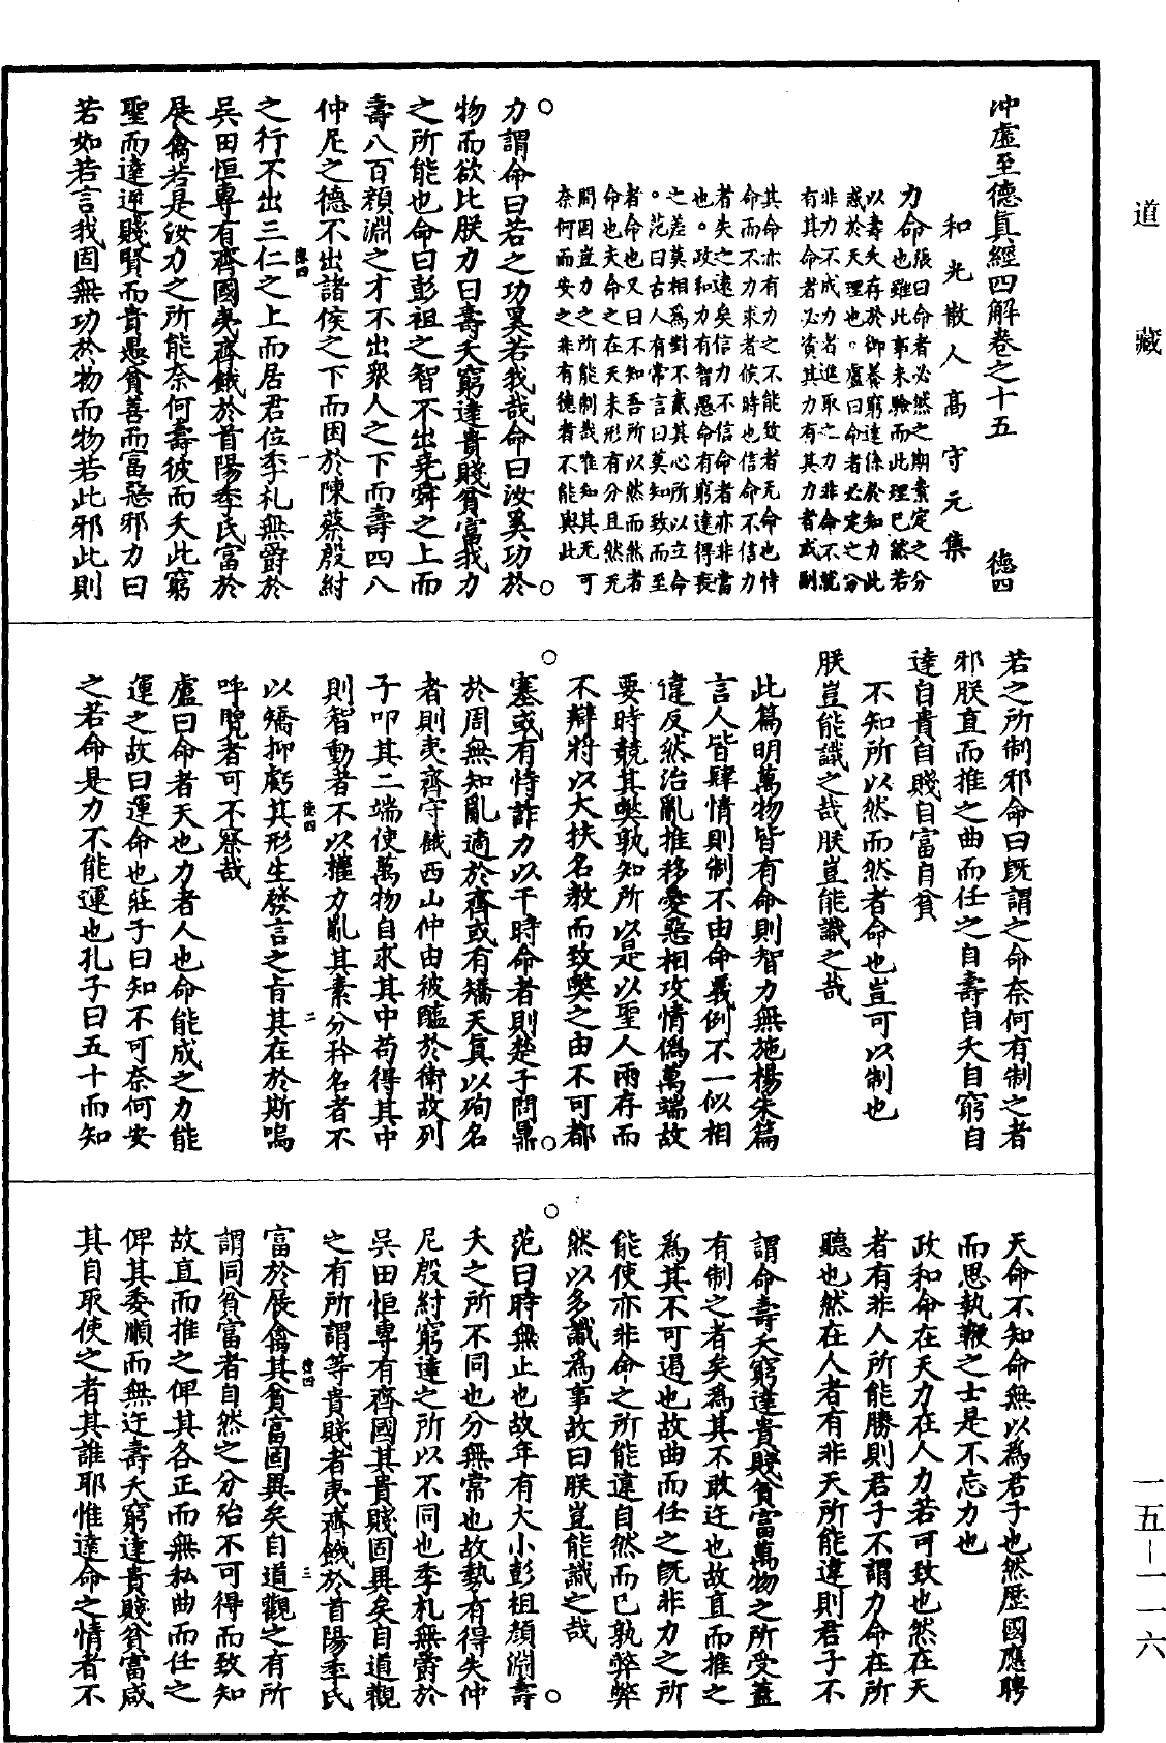 道藏
沖虛至德真經四解卷之十五　德四
和光散人高守元集
力命張曰命者必然之期素定之分
也雖此事未驗而此理已然若
以壽夭存於御養窮達係於知力此
惑於天理也。盧曰命者必定之分
非力不成力者進取之力非命不就
有其命者必資其力有其力者或副
其命亦有力之不能致者无命也恃
命而不力求者候時也信命不信力
者失之遠矣信力不信命者亦非當
也。政和力有智愚命有窮達得喪
之差莫相為對不貳其心所以立命
。范曰古人有常言曰莫知致而至
者命也又曰不知吾所以然而然者
命也夫命之在天未形有分且然无
間固豈力之所能制哉惟知其无可
奈何而安之非有德者不能與此
力謂命曰若之功奚若我哉命曰汝奚功於
物而欲比朕力曰壽夭窮達貴賤貧富我力
之所能也命曰彭祖之智不出堯舜之上而
壽八百顏淵之才不出衆人之下而壽四八
仲尼之德不出諸侯之下而困於陳蔡殷紂
之行不出三仁之上而居君位季札無爵於
吳田恒專有齊國夷齊餓於首陽季氏富於
展禽若是汝力之所能奈何壽彼而夭此窮
聖而達逆賤賢而貴愚貧善而富惡邪力曰
若如若言我固無功於物而物若此邪此則
若之所制邪命曰既謂之命奈何有制之者
邪朕直而推之曲而任之自壽自夭自窮自
達自貴自賤自富自貧
不知所以然而然者命也豈可以制也
朕豈能識之哉朕豈能識之哉
此篇明萬物皆有命則智力無施楊朱篇
言人皆肆情則制不由命義例不一似相
違反然治亂推移愛惡相攻情僞萬端故
要時競其弊孰知所以是以聖人兩存而
不辯將以大扶名教而致弊之由不可都
塞或有恃詐力以干時命者則楚子問鼎
於周無知亂適於齊或有矯天真以殉名
者則夷齊守餓西山仲由被醢於衛故列
子叩其二端使萬物自求其中苟得其中
則智動者不以權力亂其素分矜名者不
以矯抑虧其形生發言之旨其在於斯嗚
呼覽者可不察哉
盧曰命者天也力者人也命能成之力能
運之故曰運命也莊子曰知不可奈何安
之若命是力不能運也孔子曰五十而知
天命不知命無以為君子也然歷國應聘
而思執鞭之士是不忘力也
政和命在天力在人力若可致也然在天
者有非人所能勝則君子不謂力命在所
聽也然在人者有非天所能違則君子不
謂命壽夭窮達貴賤貧富萬物之所受蓋
有制之者矣為其不敢迕也故直而推之
為其不可遏也故曲而任之既非力之所
能使亦非命之所能違自然而已孰弊弊
然以多識為事故曰朕豈能識之哉
范曰時無止也故年有大小彭祖顏淵壽
夭之所不同也分無常也故勢有得失仲
尼殷紂窮達之所以不同也季札無爵於
吳田恒專有齊國其貴賤固異矣自道觀
之有所謂等貴賤者夷齊餓於首陽季氏
富於展禽其貧富固異矣自道觀之有所
謂同貧富者自然之分殆不可得而致知
故直而推之俾其各正而無私曲而任之
俾其委順而無迕壽夭窮達貴賤貧富咸
其自取使之者其誰耶惟達命之情者不
德四
一
德四
二
德四
三
一五－一一六